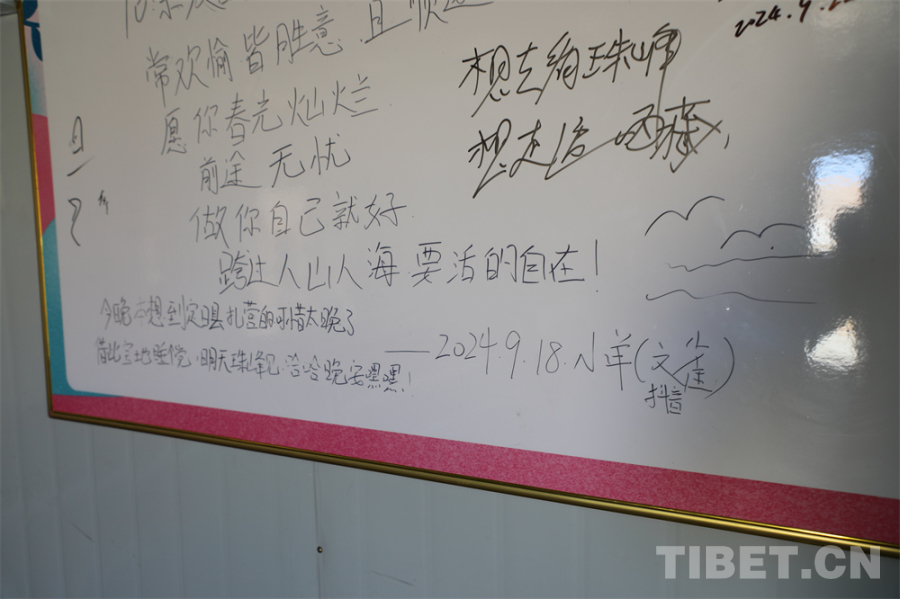 2024.9.22
常欢愉皆胜意 且顺遂
愿你春光灿烂
前途无忧
做你自己就好
跨过人山人海 要活的自在！
想去珠峰
想走 西藏
且
今晚本想到定日县扎营的可惜太晚了
借此宝地睡觉，明天珠峰见，哈哈晚安嘿嘿！
——2024.9.18.小羊(文
抖音
TIBET.CN